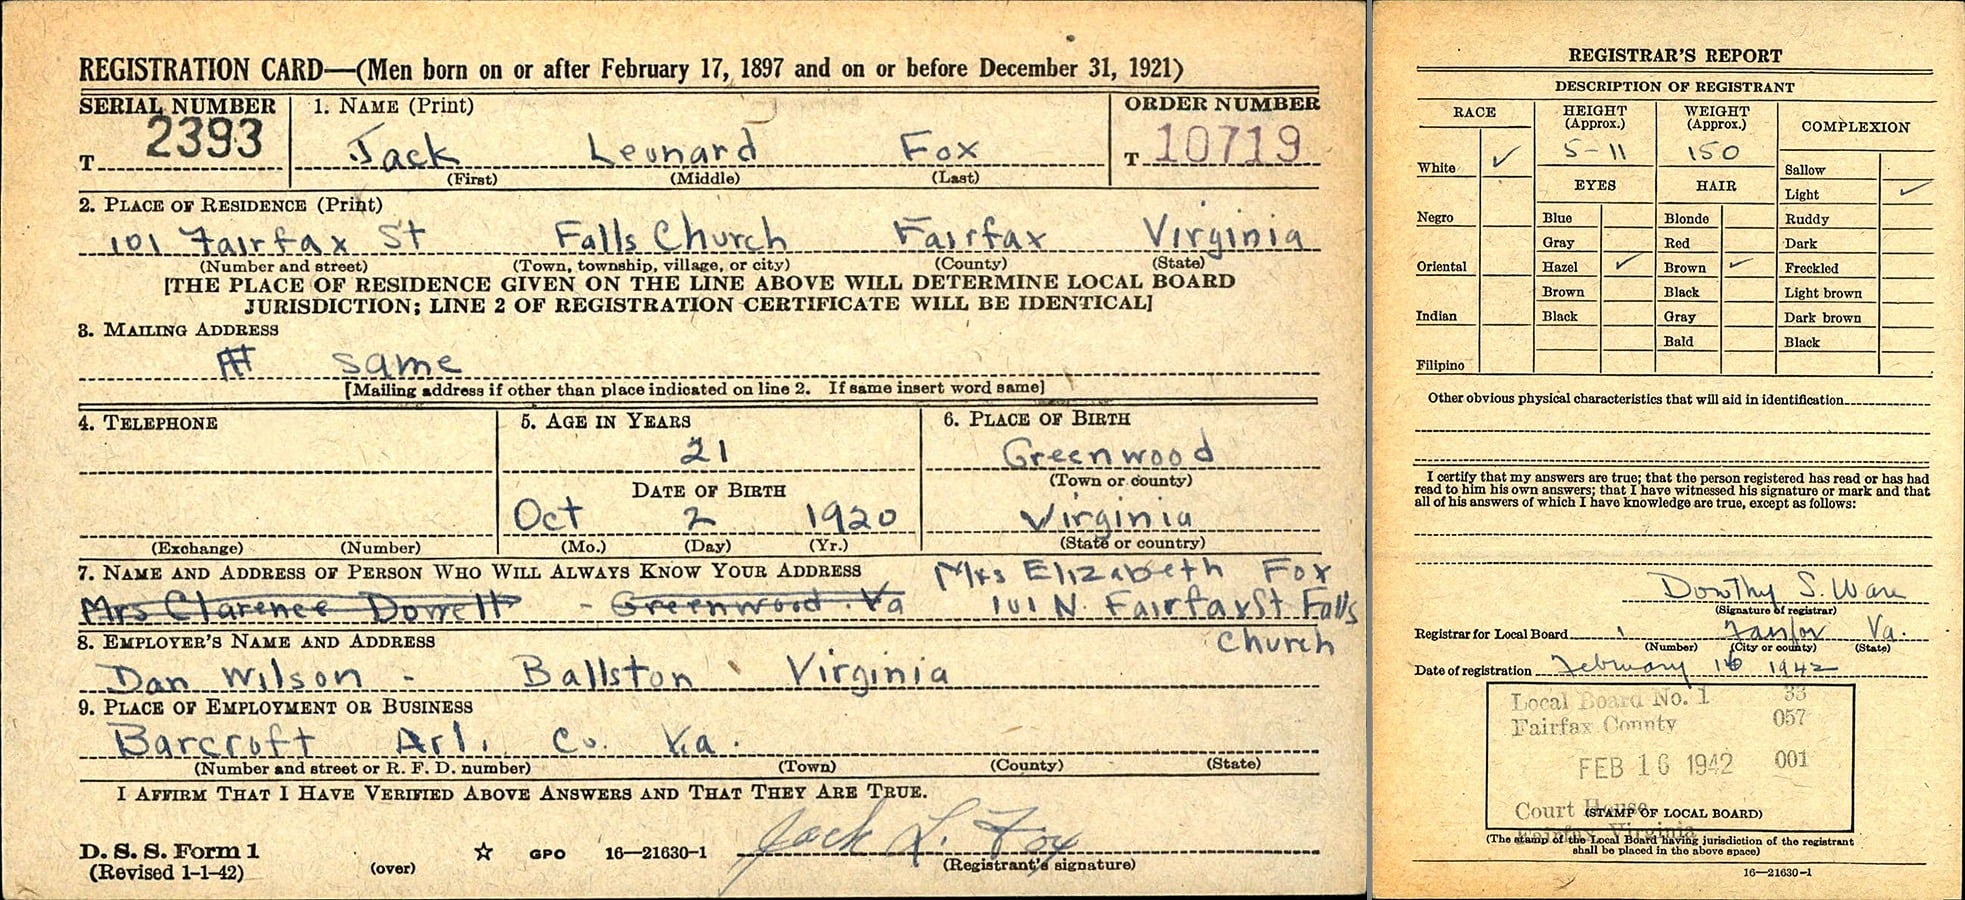 REGISTRATION CARD—(Men born on or after February 17, 1897 and on or before December 31, 1921)
SERIAL NUMBER 1. NAME (Print) ORDER NUMBER
T 2393 Jack Leonard Fox T 10719
(First) (Middle) (Last)
2. PLACE OF RESIDENCE (Print)
101 Fairfax St Falls Church Fairfax Virginia
(Number and street) (Town, township, village, or city) (County) (State)
[THE PLACE OF RESIDENCE GIVEN ON THE LINE ABOVE WILL DETERMINE LOCAL BOARD
JURISDICTION; LINE 2 OF REGISTRATION CERTIFICATE WILL BE IDENTICAL]
3. MAILING ADDRESS
same
[Mailing address if other than place indicated on line 2. If same insert word same]
4. TELEPHONE 5. AGE IN YEARS 6. PLACE OF BIRTH
21 Greenwood
(Town or county)
DATE OF BIRTH
Oct 2 1920 Virginia
(Exchange) (Number) (Mo.) (Day) (Yr.) (State or country)
7. NAME AND ADDRESS OF PERSON WHO WILL ALWAYS KNOW YOUR ADDRESS Mrs Elizabeth Fox
Mrs Clarence Dowell - Greenwood Va 101 N. Fairfax St Falls
8. EMPLOYER'S NAME AND ADDRESS Church
Dan Wilson - Ballston Virginia
9. PLACE OF EMPLOYMENT OR BUSINESS
Barcroft Arl. Co. Va.
(Number and street or R. F. D. number) (Town) (County) (State)
I AFFIRM THAT I HAVE VERIFIED ABOVE ANSWERS AND THAT THEY ARE TRUE.
Jack L. Fox
D. S. S. Form 1 (over) ☆ GPO 16—21630-1 (Registrant's signature)
(Revised 1-1-42)
REGISTRAR'S REPORT
DESCRIPTION OF REGISTRANT
RACE HEIGHT (Approx.) WEIGHT (Approx.) COMPLEXION
5-11 150
White ✓ Sallow
EYES HAIR Light ✓
Negro Blue Blonde Ruddy
Gray Red Dark
Oriental Hazel ✓ Brown ✓ Freckled
Brown Black Light brown
Indian Black Gray Dark brown
Bald Black
Filipino
Other obvious physical characteristics that will aid in identification
I certify that my answers are true; that the person registered has read or has had
read to him his own answers; that I have witnessed his signature or mark and that
all of his answers of which I have knowledge are true, except as follows:
Dorothy S. Ware
(Signature of registrar)
Registrar for Local Board 1 Fairfax Va.
(Number) (City or county) (State)
Date of registration February 16 1942
Local Board No. 1 33
Fairfax County 057
FEB 16 1942 001
Court House
(STAMP OF LOCAL BOARD)
Fairfax, Virginia
(The stamp of the Local Board having jurisdiction of the registrant
shall be placed in the above space)
16—21630-1